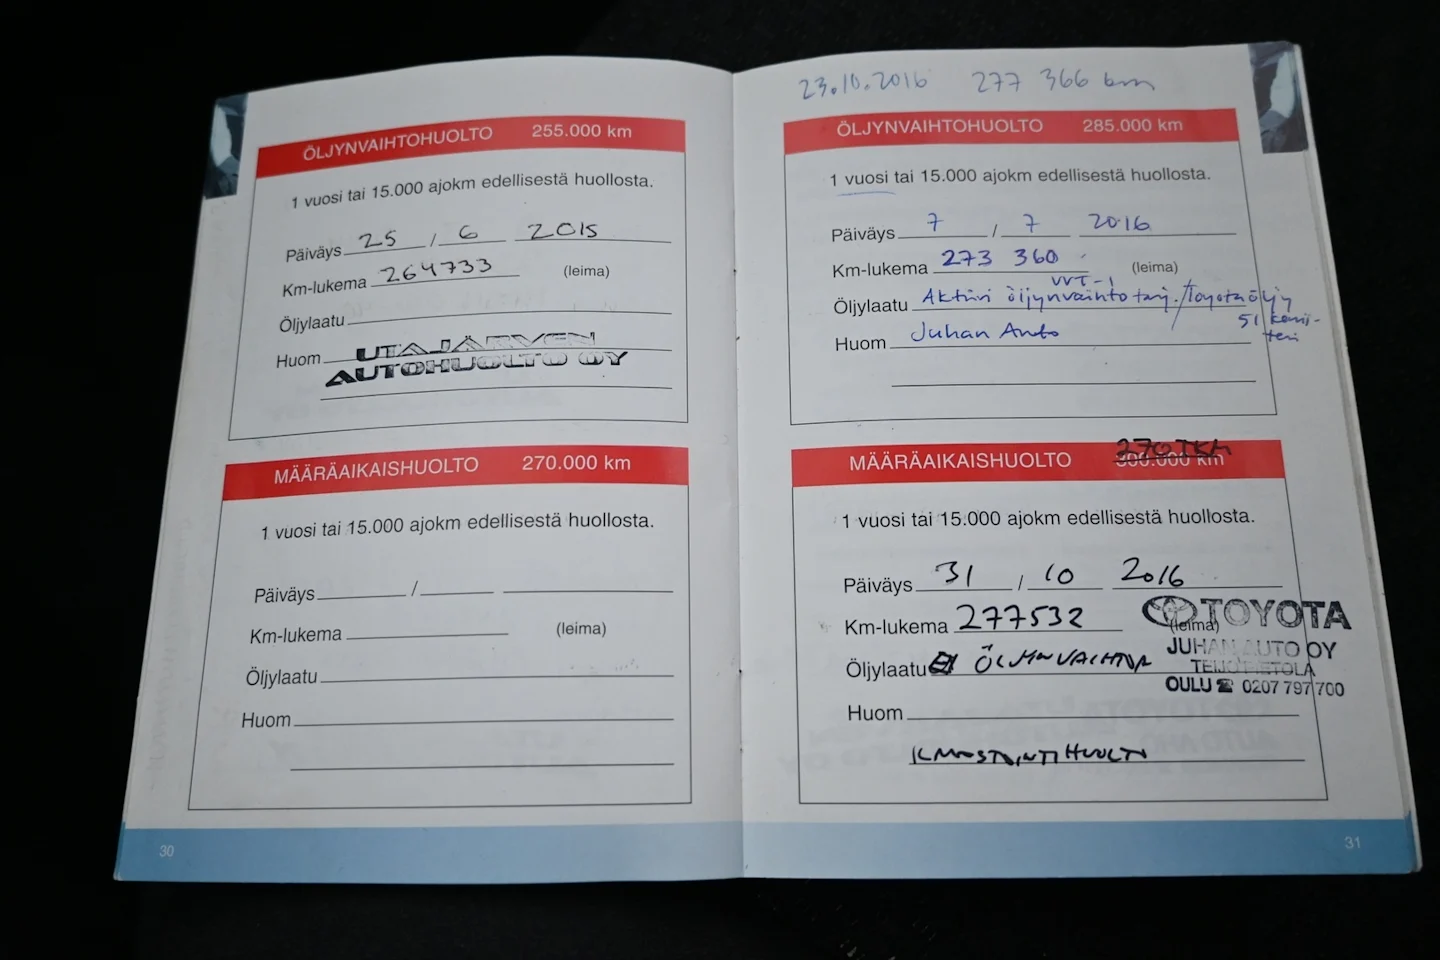 ÖLJYNVAIHTOHUOLTO 255.000 km
1 vuosi tai 15.000 ajokm edellisestä huollosta.
Päiväys 25 / 6 2015
Km-lukema 264733 (leima)
Öljylaatu
Huom UTAJÄRVEN
AUTOHUOLTO OY
MÄÄRÄAIKAISHUOLTO 270.000 km
1 vuosi tai 15.000 ajokm edellisestä huollosta.
Päiväys /
Km-lukema (leima)
Öljylaatu
Huom
30
23.10.2016 277 366 km
ÖLJYNVAIHTOHUOLTO 285.000 km
1 vuosi tai 15.000 ajokm edellisestä huollosta.
Päiväys 7 / 7 2016
Km-lukema 273 360 (leima)
VVT-i
Öljylaatu Aktiivi öljynvaihto tarj. / Toyota öljy
5l kanis-
teri
Huom Juhan Auto
270 TKM
MÄÄRÄAIKAISHUOLTO 300.000 km
1 vuosi tai 15.000 ajokm edellisestä huollosta.
Päiväys 31 / 10 2016
Km-lukema 277532 (leima)
TOYOTA
JUHAN AUTO OY
Öljylaatu ÖLJYNVAIHTOA
TEIJO PIETOLA
OULU ☎ 0207 797 700
Huom
ILMASTOINTIHUOLTO
31